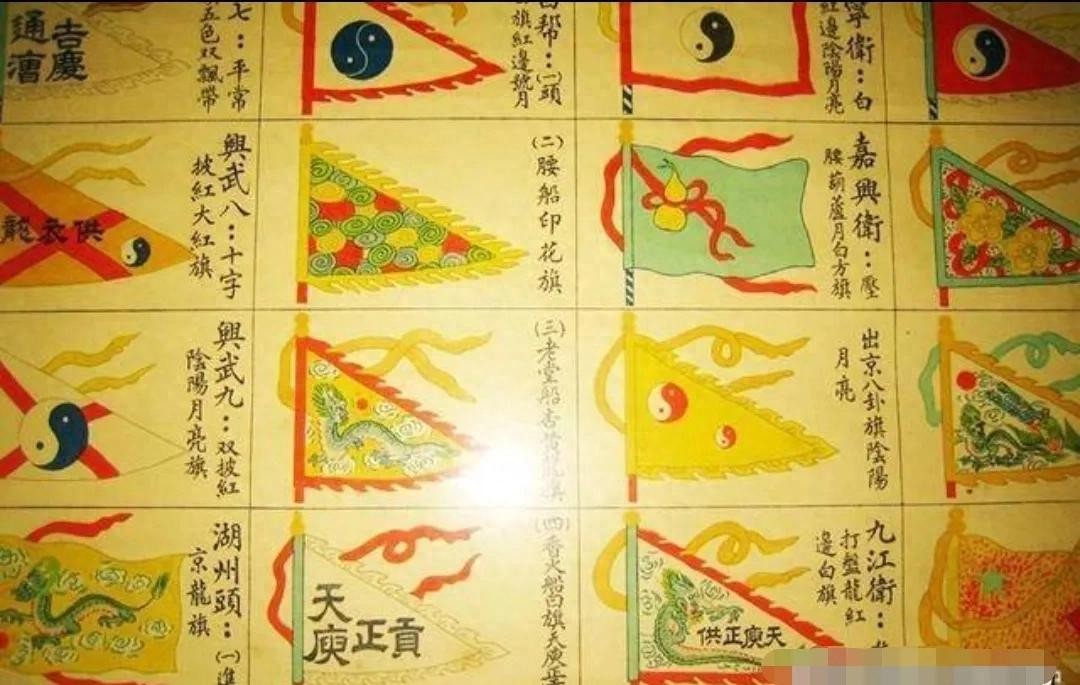 寧衛：白
紅邊陰陽月亮
白幫：(一)頭
旗紅邊號月
七：平常
五色双飄帶
吉慶
通漕
嘉興衛：壓
腰葫蘆月白方旗
(二)腰船印花旗
興武八：十字
披紅大紅旗
龍衣供
出京八卦旗陰陽
月亮
(三)老堂船杏黃龍旗
興武九：双披紅
陰陽月亮旗
九江衛：
打盤龍紅
邊白旗
天庾正供
(四)香火船白旗天庾正
天庾
正貢
湖州頭：(一)進
京龍旗